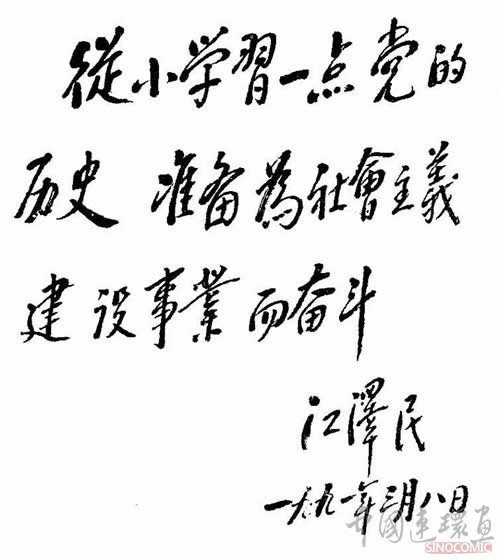 從小学習一点党的
历史 准备為社會主義
建设事業而奋斗
江澤民
一九九一年三月八日
中國連環画
SINOCOMIC